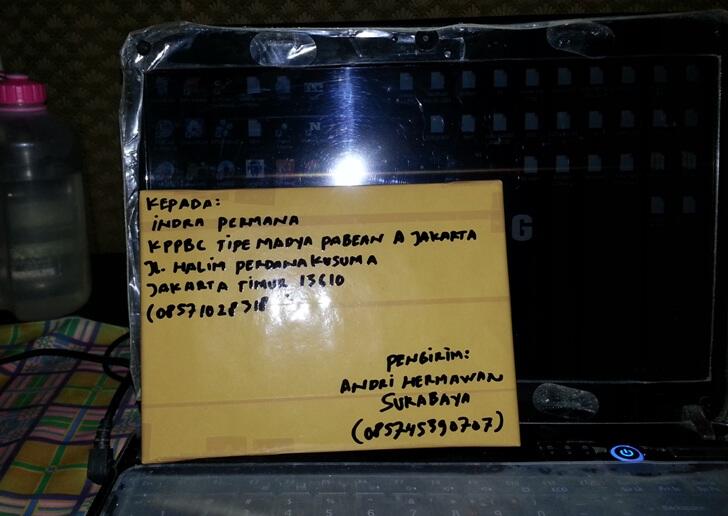 KEPADA:
INDRA PERMANA
KPPBC TIPE MADYA PABEAN A JAKARTA
JL. HALIM PERDANAKUSUMA
JAKARTA TIMUR 13610
PENGIRIM:
ANDRI HERMAWAN
SURABAYA
(085745390707)
G